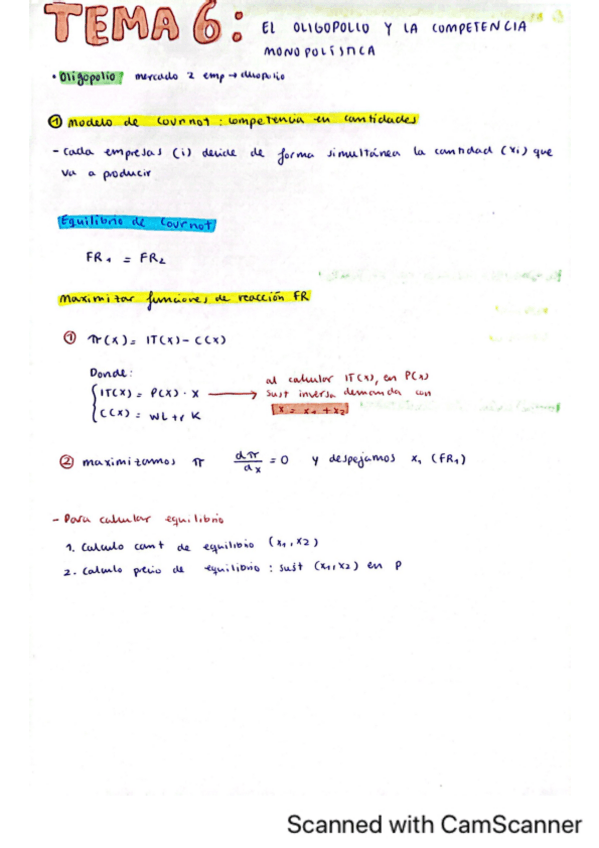 TEMA 6: EL OLIGOPOLIO Y LA COMPETENCIA
MONOPOLÍSTICA
• Oligopolio: mercado 2 emp → duopolio
① Modelo de Cournot: competencia en cantidades
- Cada empresas (i) decide de forma simultánea la cantidad (xi) que
va a producir
Equilibrio de Cournot
FR₁ = FR₂
Maximizar funciones de reacción FR
① π(x) = IT(x) - C(x)
Donde:
IT(x) = P(x) · x → al calcular IT(x), en P(x)
sust inversa demanda con
C(x) = WL + r K
x = x₁ + x₂
② maximizamos π dπ/dx = 0 y despejamos x₁ (FR₁)
- Para calcular equilibrio
1. Calculo cant de equilibrio (x₁, x₂)
2. Calculo precio de equilibrio: sust (x₁, x₂) en P
Scanned with CamScanner